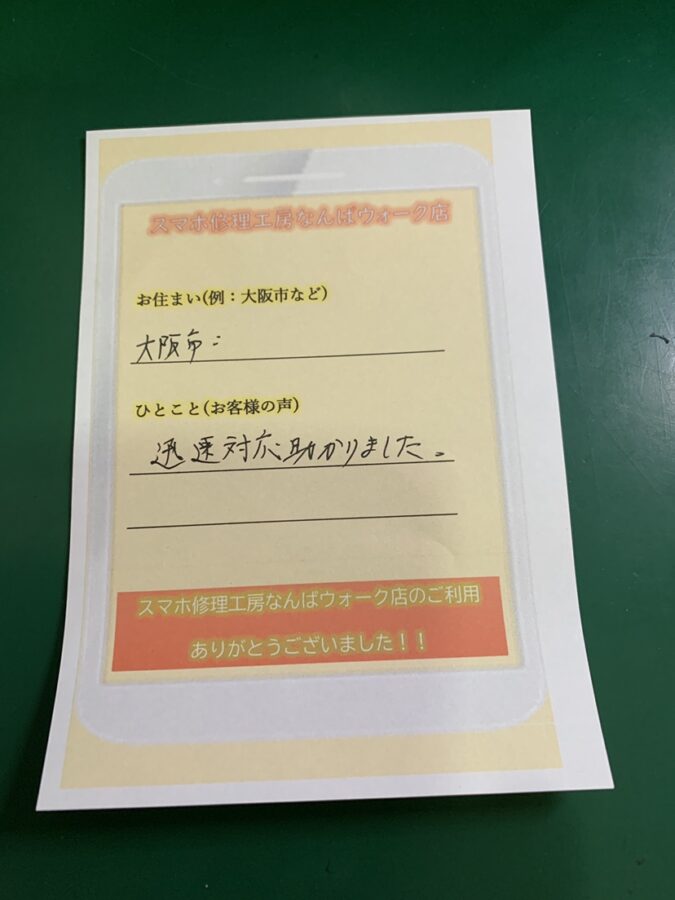 スマホ修理工房なんばウォーク店
お住まい(例：大阪市など)
大阪市:
ひとこと(お客様の声)
迅速対応助かりました。
スマホ修理工房なんばウォーク店のご利用
ありがとうございました！！